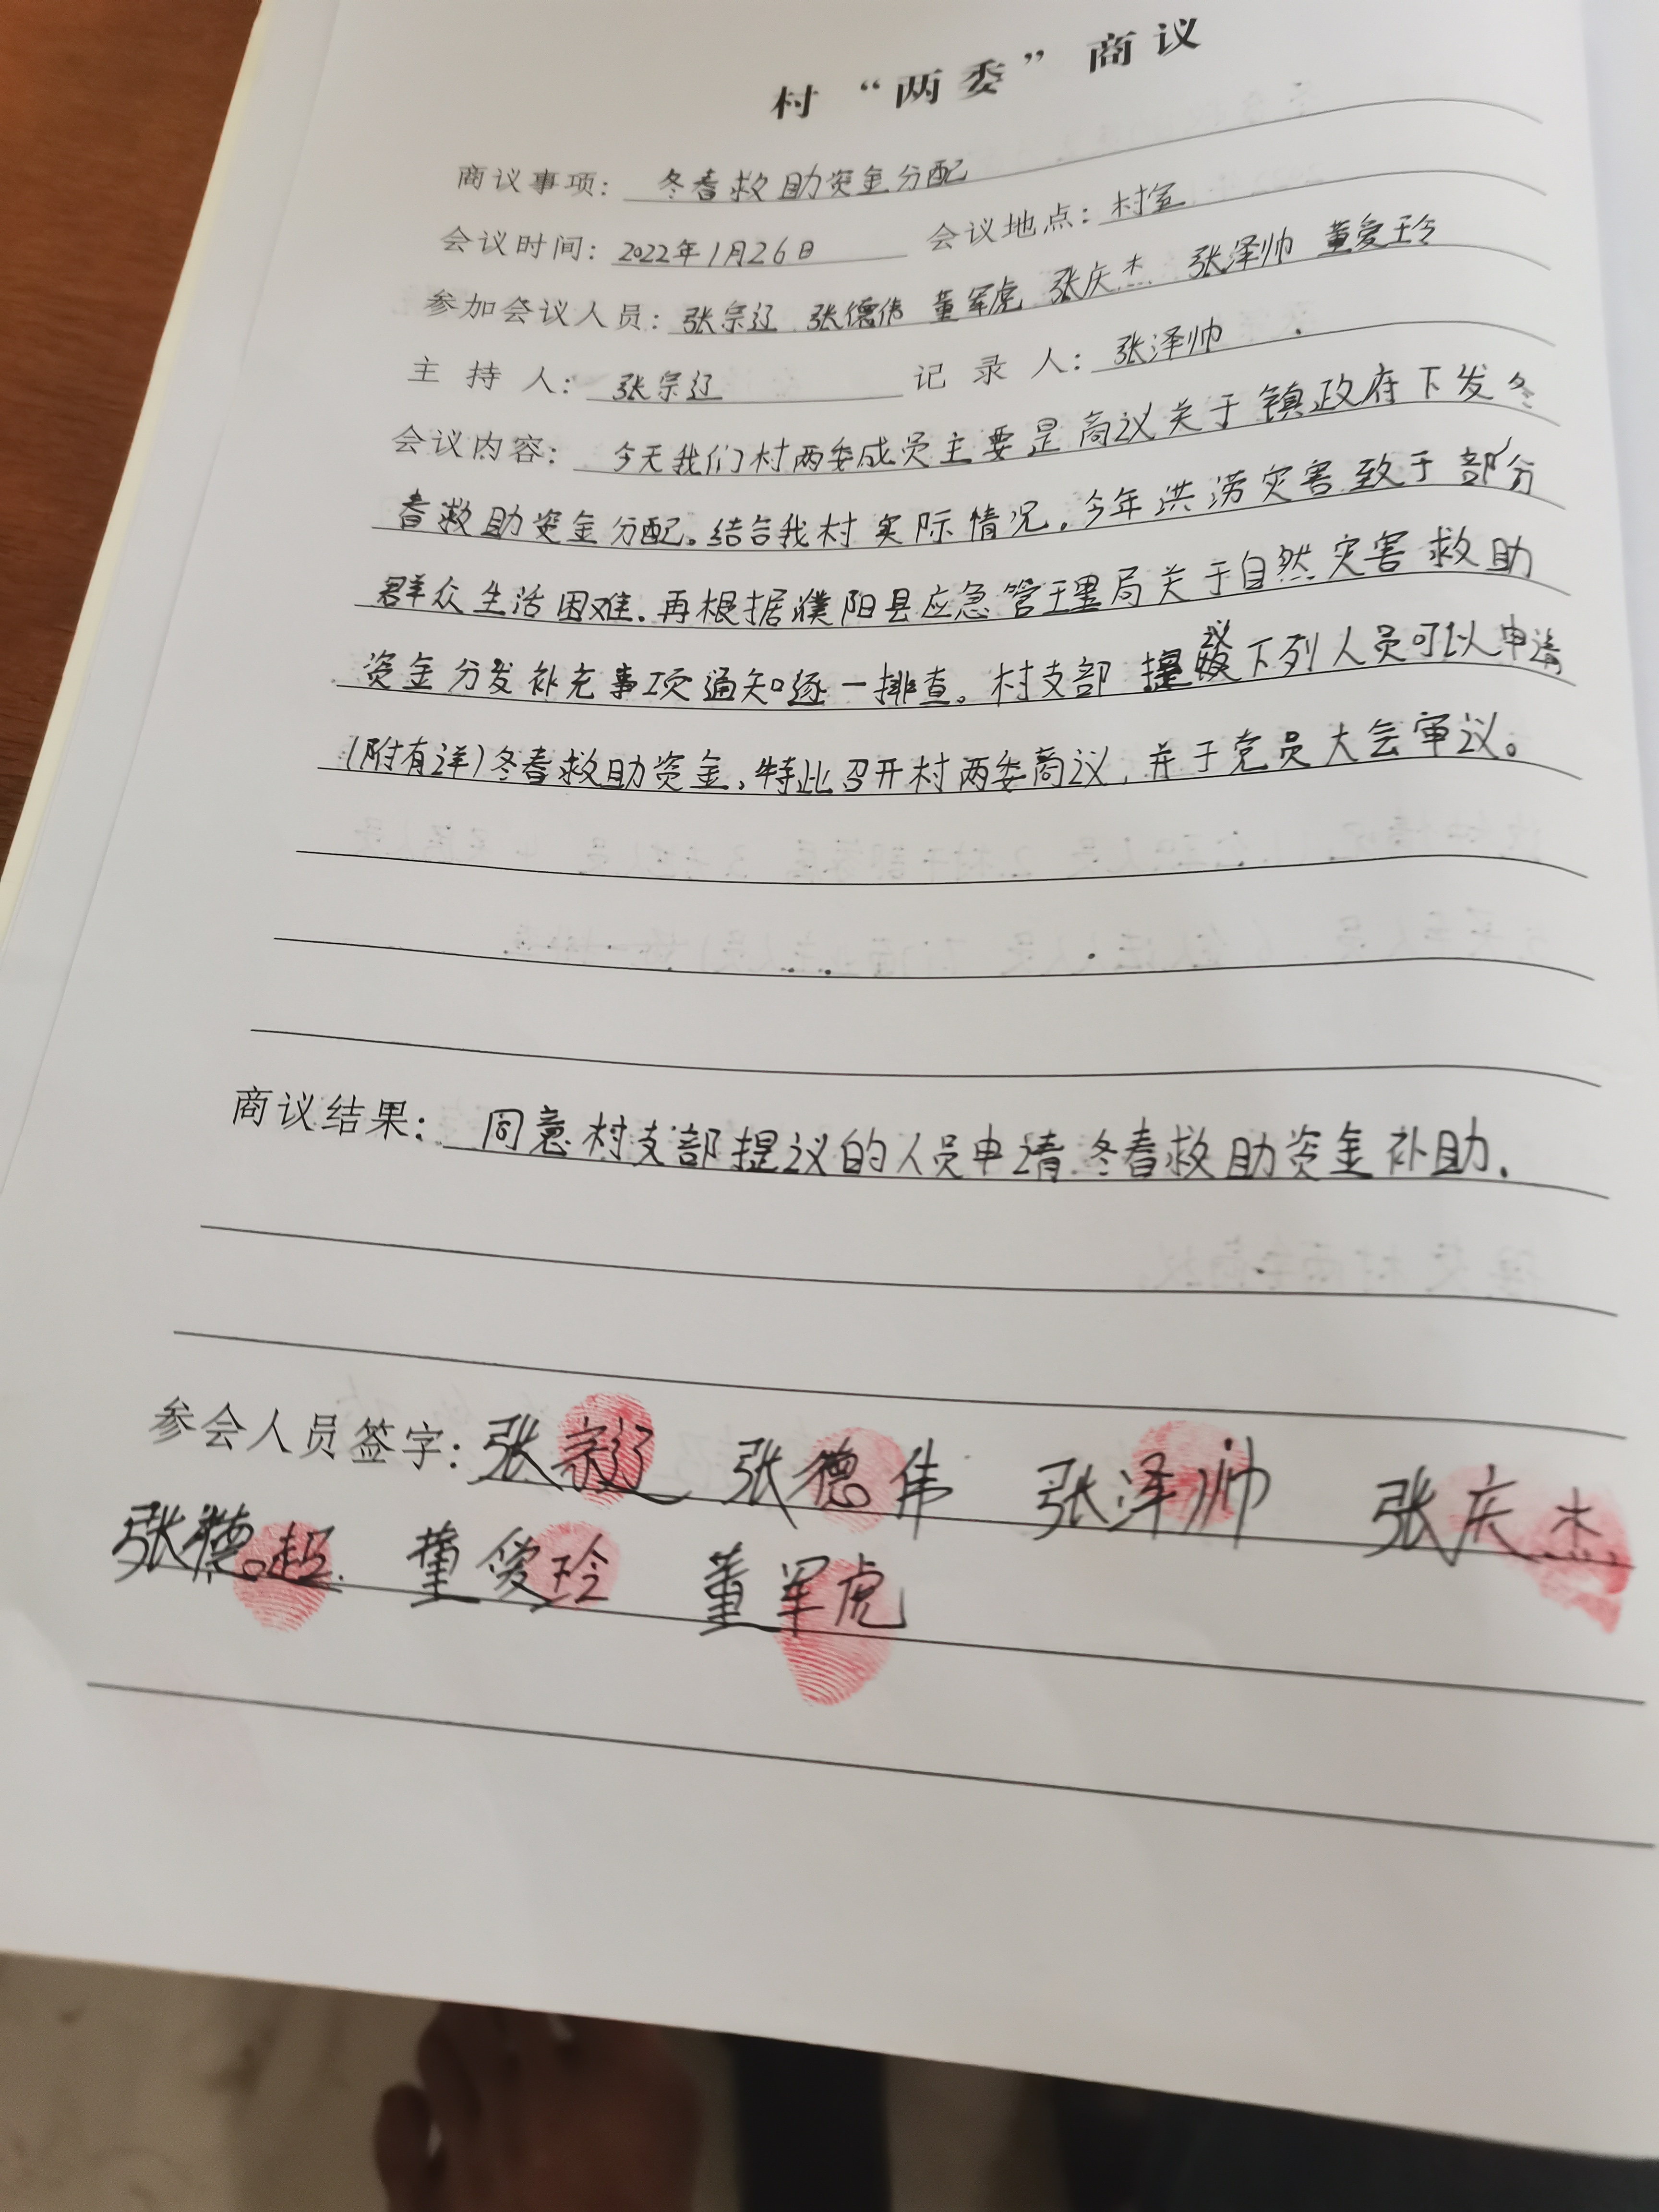 村“两委”商议
商议事项：冬春救助资金分配
会议时间：2022年1月26日 会议地点：村室
参加会议人员：张宗辽 张德伟 董军虎 张庆杰 张泽帅 董爱玲
主持人：张宗辽 记录人：张泽帅
会议内容：今天我们村两委成员主要是商议关于镇政府下发冬
春救助资金分配。结合我村实际情况，今年洪涝灾害致于部分
群众生活困难，再根据濮阳县应急管理局关于自然灾害救助
资金分发补充事项通知逐一排查。村支部提议下列人员可以申请
(附有详)冬春救助资金，特此召开村两委商议，并于党员大会审议。
商议结果：同意村支部提议的人员申请冬春救助资金补助.
参会人员签字：张宗辽 张德伟 张泽帅 张庆杰
张德超 董爱玲 董军虎